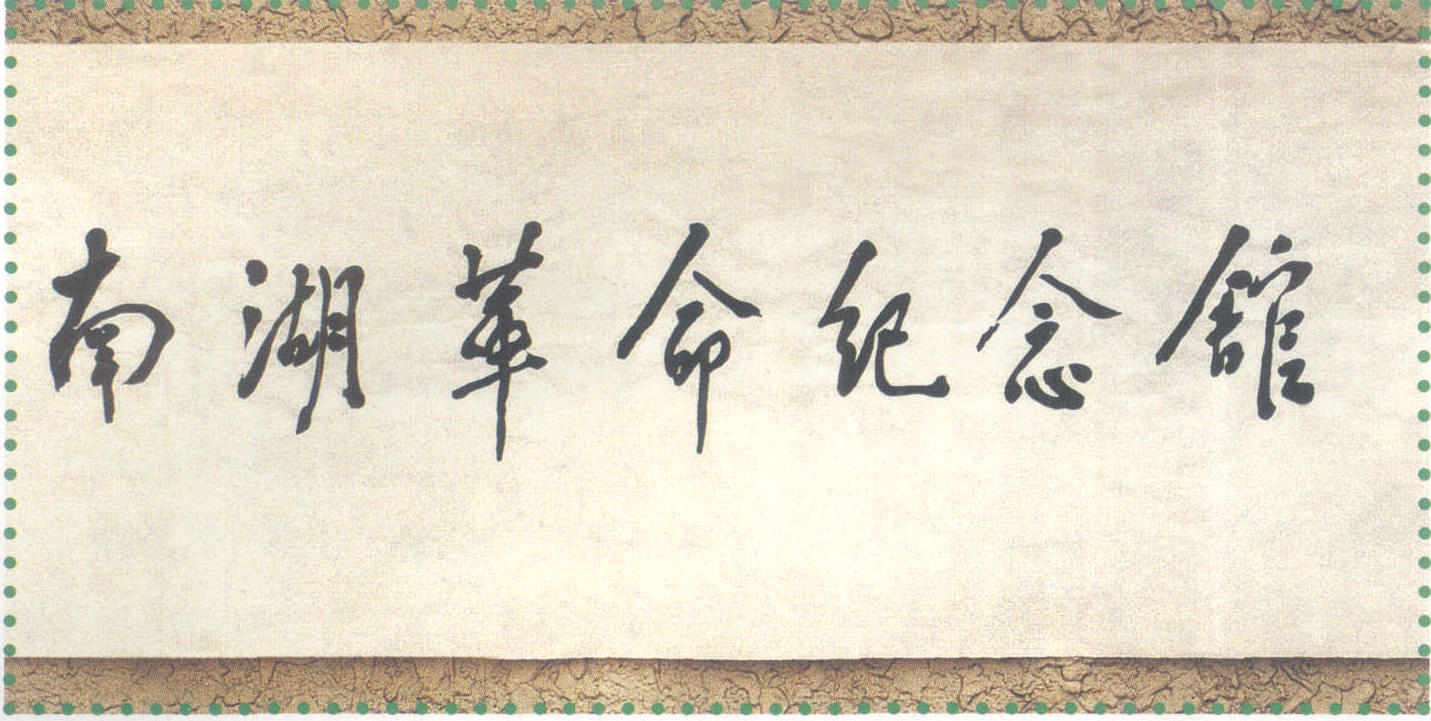 南湖革命纪念舘